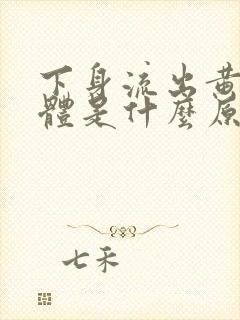 下身流出黃
體是什麼原
七禾